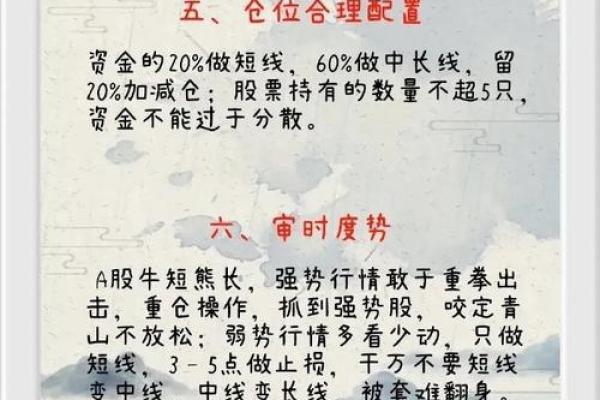 五、仓位合理配置
资金的20%做短线，60%做中长线，留
20%加减仓；股票持有的数量不超5只，
资金不能过于分散。
六、审时度势
A股牛短熊长，强势行情敢于重拳出
击，重仓操作，抓到强势股，咬定青
山不放松；弱势行情多看少动，只做
短线，3-5点做止损，千万不要短线
变中线，中线变长线，被套难翻身。